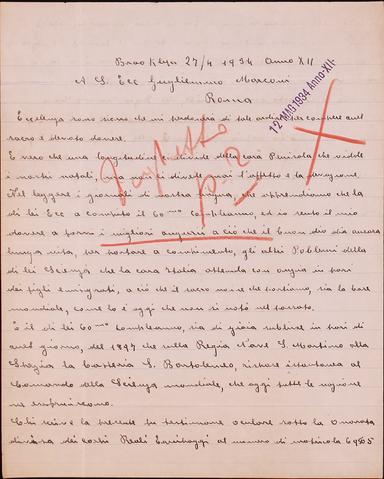 Brooklyn 27/4 1934 Anno XII
A S. Ecc Guglielmo Marconi
Roma
12 MAG 1934 Anno-XII-
Eccellenza sono sicuro che mi perdonerà di tale ardire per compiere quest
sacro e devoto dovere.
È vero che una longitudine ci divide della cara Penisola che vidde
i nostri natali, ma non ci divide mai l'affetto e la devozione.
Nel leggere i giornali di nostra lingua, che apprendiamo che la
di lei Ecc a compito il 60mo Compleanno, ed io sento il mio
dovere a porvi i migliori auguri a ciò che il buon dio dia ancora
lunga vita, per portare a compimento, gli altri Poblemi della
di lei Scienza che la cara Italia attende con ansia in pari
dei figli emigrati, a ciò che il sacro nome che portiamo, sia la luce
mondiale, come lo è oggi che non si potè nel passato.
È il di lei 60mo Compleanno, sia di gioia sublime in pari di
quel giorno, del 1897 che nella Regia Nave S Martino alla
Spezia la Batteria S. Bartolomeo, rimase istantanea al
Comando della Scienza mondiale, che oggi tutte le nazione
ne usufruiscono.
Chi scrive la presente fu testimone oculare sotto la Onorata
divisa dei Corpi Reali Equipaggi al numero di matricola 69565